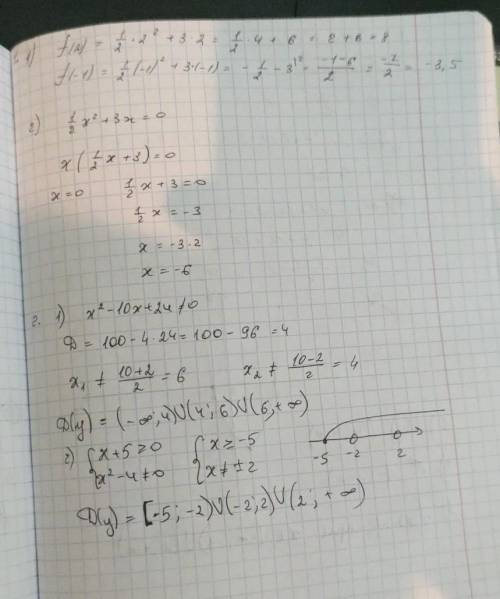 1) f(2) = 1/2 · 2² + 3 · 2 = 1/2 · 4 + 6 = 2 + 6 = 8
f(-1) = 1/2 (-1)² + 3·(-1) = - 1/2 - 3 = (-1-6)/2 = -7/2 = -3,5
2) 1/2 x² + 3x = 0
x (1/2 x + 3) = 0
x = 0 1/2 x + 3 = 0
1/2 x = -3
x = -3·2
x = -6
2. 1) x² - 10x + 24 ≠ 0
D = 100 - 4·24 = 100 - 96 = 4
x₁ ≠ (10+2)/2 = 6 x₂ ≠ (10-2)/2 = 4
D(y) = (-∞; 4) U (4; 6) U (6; +∞)
2) { x + 5 ≥ 0 { x ≥ -5
x² - 4 ≠ 0 x ≠ ±2
-5 -2 2
D(y) = [-5; -2) U (-2; 2) U (2; +∞)